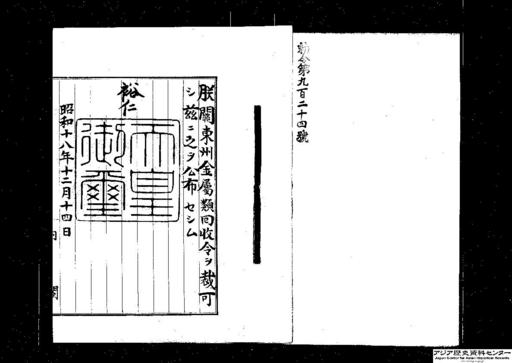 朕關東州金屬類回收令ヲ裁可
シ茲ニ之ヲ公布セシム
裕仁
天皇
御璽
昭和十八年十二月十四日
内閣
勅令第九百二十四號
アジア歴史資料センター
Japan Center for Asian Historical Records